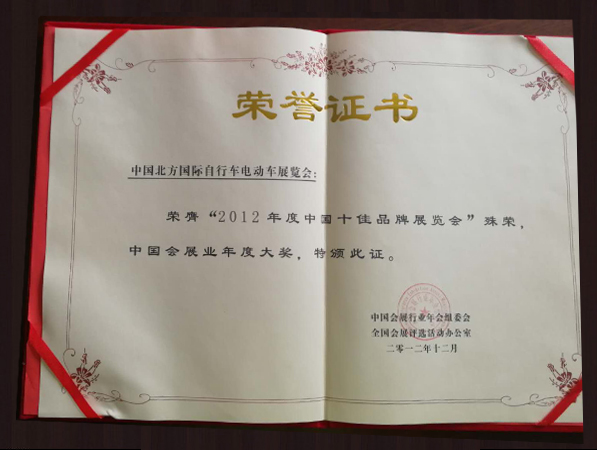 荣誉证书
中国北方国际自行车电动车展览会：
荣膺“2012年度中国十佳品牌展览会”殊荣，
中国会展业年度大奖，特颁此证。
中国会展行业年会组委会
全国会展评选活动办公室
二零一二年十二月